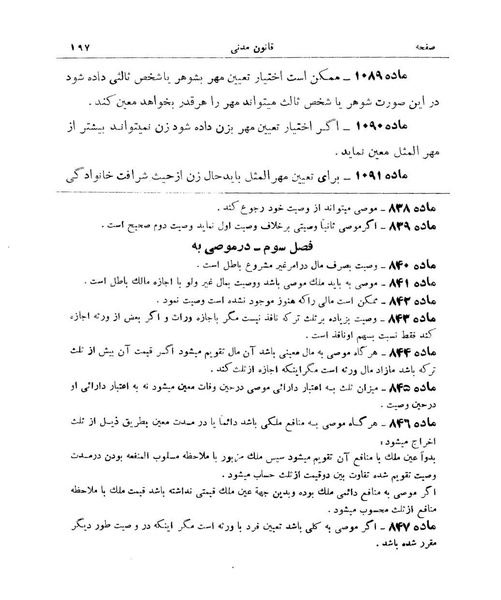 صفحه قانون مدنی ۱۹۷
ماده ۱۰۸۹ ــ ممکن است اختیار تعیین مهر بشوهر یا شخص ثالثی داده شود
در این صورت شوهر یا شخص ثالث میتواند مهر را هرقدر بخواهد معین کند.
ماده ۱۰۹۰ ــ اگر اختیار تعیین مهر بزن داده شود زن نمیتواند بیشتر از
مهر المثل معین نماید.
ماده ۱۰۹۱ ــ برای تعیین مهر المثل باید حال زن از حیث شرافت خانوادگی
ماده ۸۳۸ ـ موصی میتواند از وصیت خود رجوع کند.
ماده ۸۳۹ ـ اگر موصی ثانیاً وصیتی برخلاف وصیت اول نماید وصیت دوم صحیح است.
فصل سوم ــ در موصی به
ماده ۸۴۰ ـ وصیت بصرف مال در امر غیر مشروع باطل است.
ماده ۸۴۱ ـ موصی به باید ملک موصی باشد و وصیت بمال غیر ولو با اجازه مالک باطل است.
ماده ۸۴۲ ـ ممکن است مالی را که هنوز موجود نشده است وصیت نمود.
ماده ۸۴۳ ـ وصیت بزیاده بر ثلث ترکه نافذ نیست مگر باجازه وراث و اگر بعض از ورثه اجازه
کند فقط نسبت بسهم او نافذ است.
ماده ۸۴۴ ـ هر گاه موصی به مال معینی باشد آن مال تقویم میشود اگر قیمت آن بیش از ثلث
ترکه باشد مازاد مال ورثه است مگر اینکه اجازه از ثلث کند.
ماده ۸۴۵ ـ میزان ثلث به اعتبار دارائی موصی در حین وفات معین میشود نه به اعتبار دارائی او
در حین وصیت.
ماده ۸۴۶ ـ هر گاه موصی به منافع ملکی باشد دائماً یا در مدت معین بطریق ذیل از ثلث
اخراج میشود:
بدواً عین ملک با منافع آن تقویم میشود سپس ملک مزبور با ملاحظه مسلوب المنفعه بودن در مدت
وصیت تقویم شده تفاوت بین دو قیمت از ثلث حساب میشود.
اگر موصی به منافع دائمی ملک بوده و بدین جهة عین ملک قیمتی نداشته باشد قیمت ملک با ملاحظه
منافع از ثلث محسوب میشود.
ماده ۸۴۷ ـ اگر موصی به کلی باشد تعیین فرد با ورثه است مگر اینکه در وصیت طور دیگر
مقرر شده باشد.